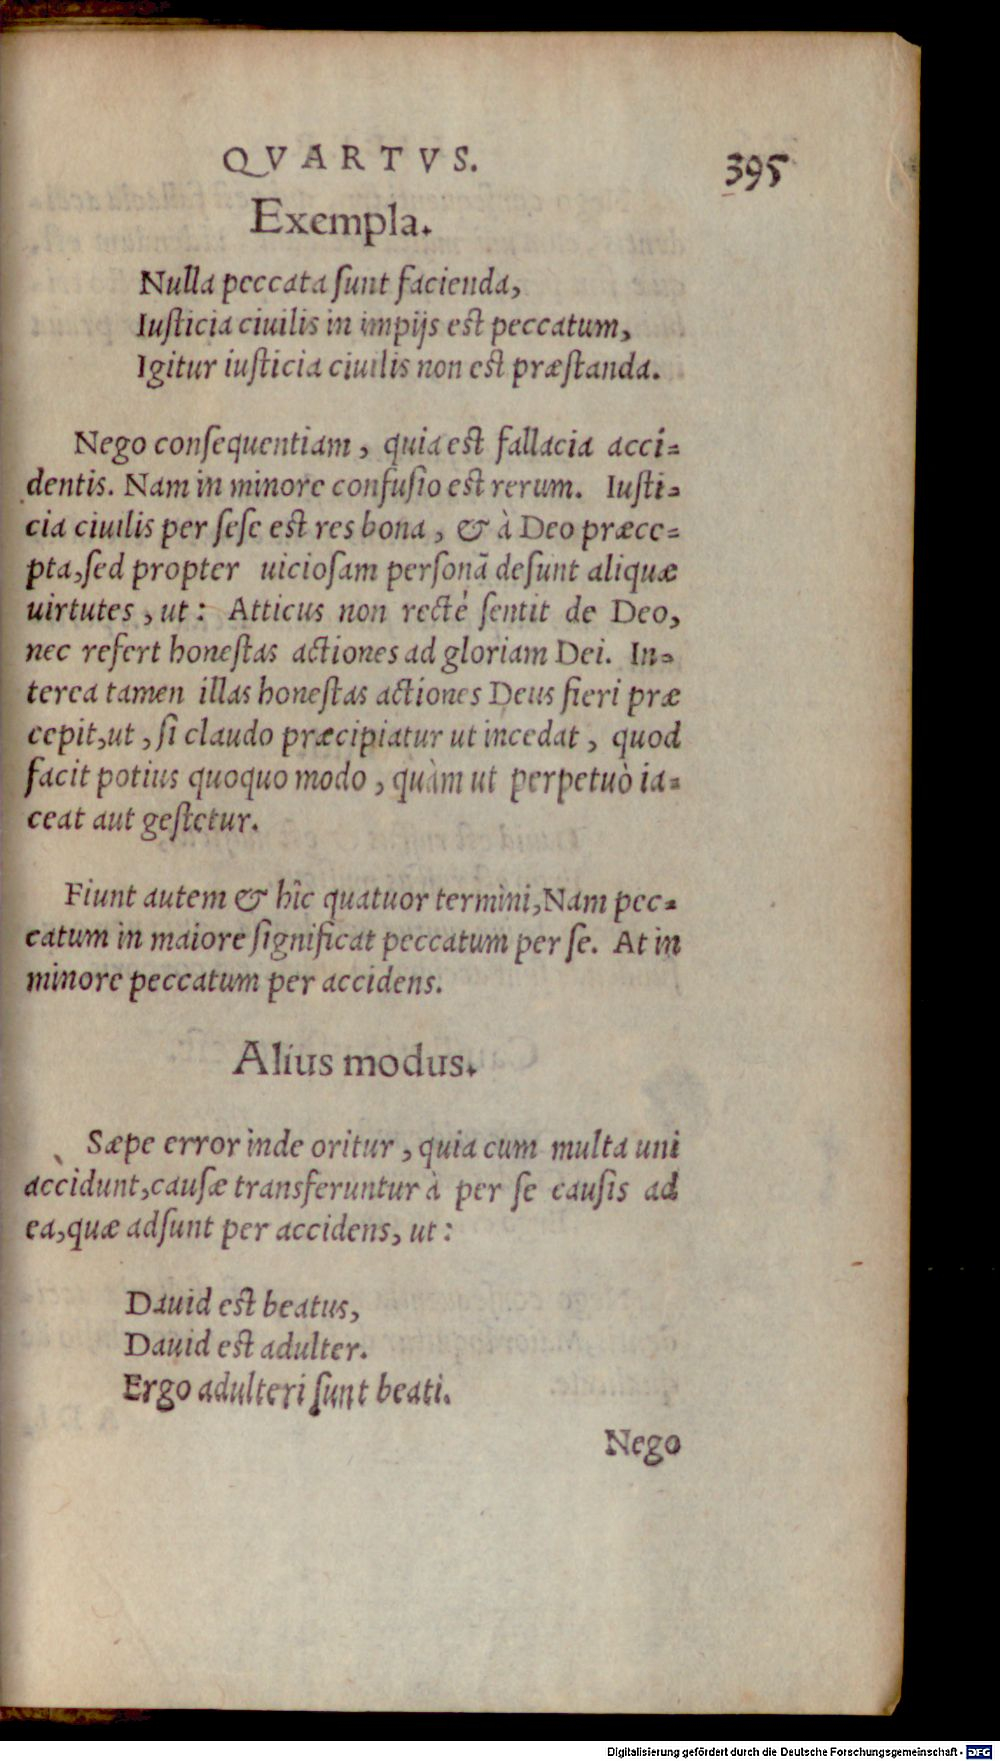 QVARTVS.
395
Exempla.
Nulla peccata ſunt facienda,
Iuſticia ciuilis in impijs est peccatum,
Igitur iuſticia ciuilis non est præſtanda.
Nego conſequentiam, quia est fallacia acci-
dentis. Nam in minore confuſio est rerum. Iuſti-
cia ciuilis per ſeſe est res bona, & à Deo præce-
pta, ſed propter uicioſam perſonā deſunt aliquæ
uirtutes, ut: Atticus non recté ſentit de Deo,
nec refert honeſtas actiones ad gloriam Dei. In-
terea tamen illas honeſtas actiones Deus fieri præ
cepit, ut, ſi claudo præcipiatur ut incedat, quod
facit potius quoquo modo, quàm ut perpetuò ia-
ceat aut geſtetur.
Fiunt autem & hîc quatuor termini, Nam pec-
catum in maiore ſignificat peccatum per ſe. At in
minore peccatum per accidens.
Alius modus.
Sæpe error inde oritur, quia cum multa uni
accidunt, cauſæ transferuntur à per ſe cauſis ad
ea, quæ adſunt per accidens, ut:
Dauid est beatus,
Dauid est adulter.
Ergo adulteri ſunt beati.
Nego
Digitalisierung gefördert durch die Deutsche Forschungsgemeinschaft - DFG